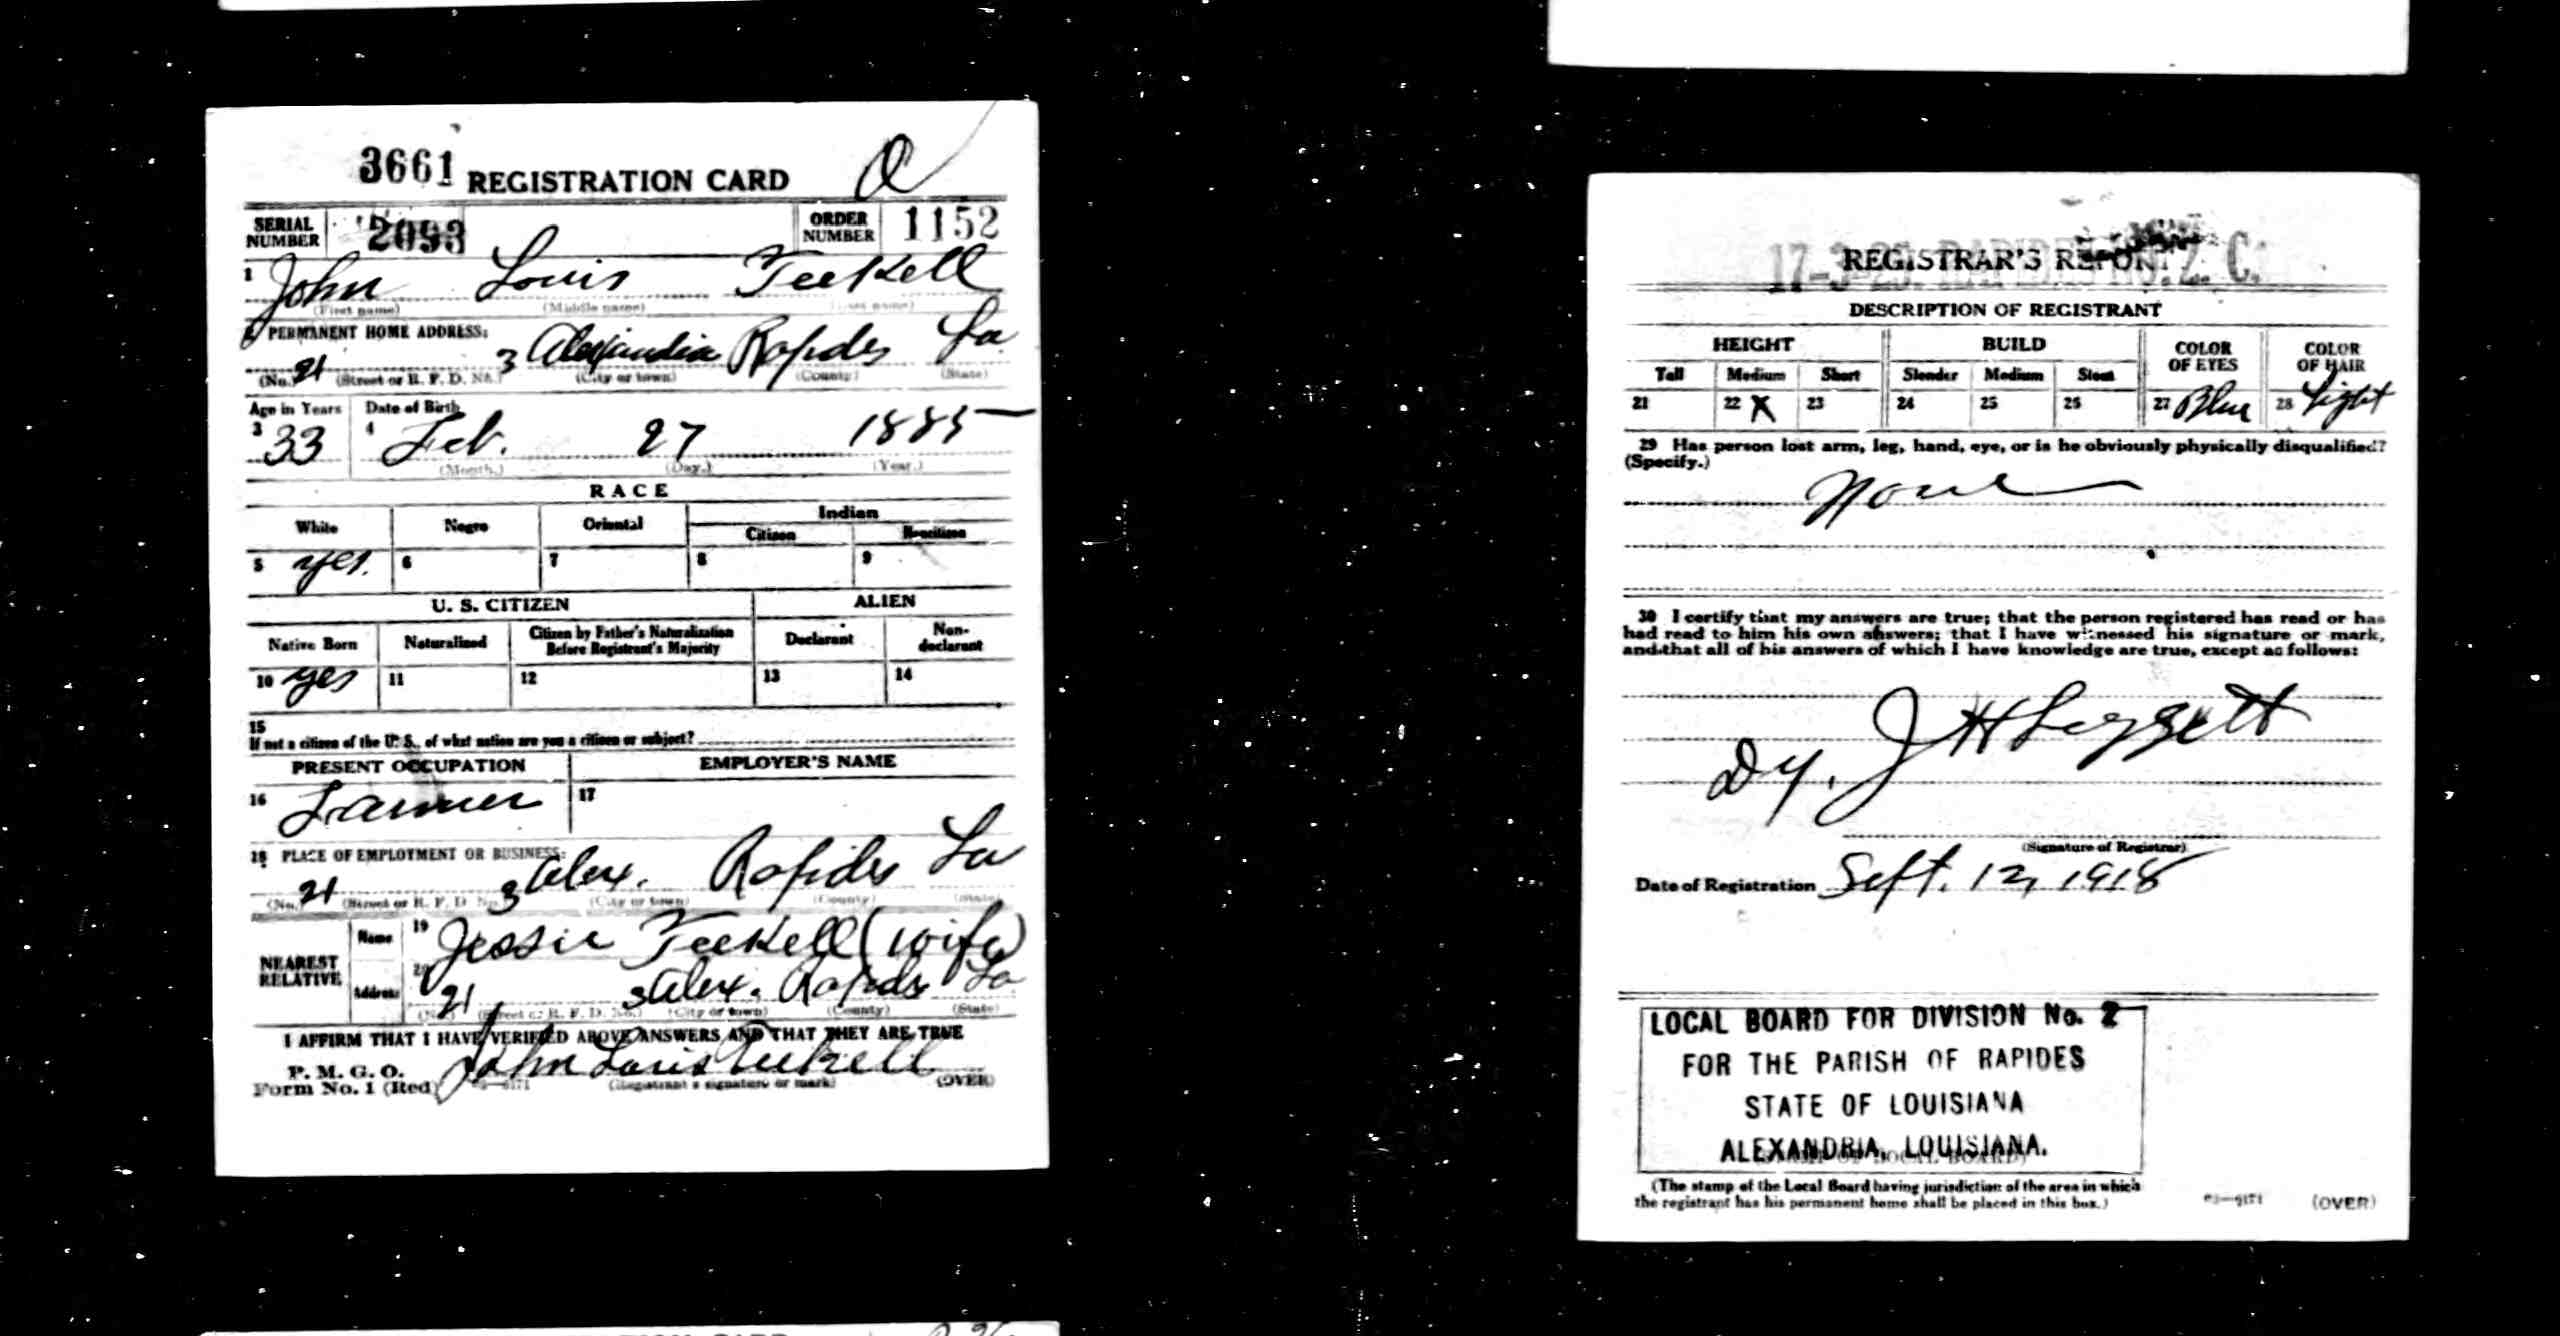 3661 REGISTRATION CARD
SERIAL NUMBER 2093 ORDER NUMBER 1152
1 John Louis Teekell
(First name) (Middle name) (Last name)
2 PERMANENT HOME ADDRESS:
21 3 Alexandria Rapides La
(No.) (Street or R. F. D. No.) (City or town) (County) (State)
Age in Years Date of Birth
3 33 4 Feb. 27 1885
(Month.) (Day.) (Year.)
RACE
White Negro Oriental Indian
Citizen Noncitizen
5 yes. 6 7 8 9
U. S. CITIZEN ALIEN
Native Born Naturalized Citizen by Father's Naturalization Before Registrant's Majority Declarant Non-declarant
10 yes 11 12 13 14
15
If not a citizen of the U. S., of what nation are you a citizen or subject?
PRESENT OCCUPATION EMPLOYER'S NAME
16 Farmer 17
18 PLACE OF EMPLOYMENT OR BUSINESS:
21 3 Alex. Rapides La
(No.) (Street or R. F. D. No.) (City or town) (County) (State)
NEAREST RELATIVE
Name 19 Jessie Teekell (wife)
Address 20 21 3 Alex. Rapids La
(No.) (Street or R. F. D. No.) (City or town) (County) (State)
I AFFIRM THAT I HAVE VERIFIED ABOVE ANSWERS AND THAT THEY ARE TRUE
P. M. G. O.
Form No. 1 (Red) John Louis Teekell
(Registrant's signature or mark) (OVER)
REGISTRAR'S REPORT
DESCRIPTION OF REGISTRANT
HEIGHT BUILD COLOR OF EYES COLOR OF HAIR
Tall Medium Short Slender Medium Stout
21 22 X 23 24 25 26 27 Blue 28 Light
29 Has person lost arm, leg, hand, eye, or is he obviously physically disqualified?
(Specify.)
None
30 I certify that my answers are true; that the person registered has read or has
had read to him his own answers; that I have witnessed his signature or mark,
and that all of his answers of which I have knowledge are true, except as follows:
Dy. J H Leggett
(Signature of Registrar)
Date of Registration Sept. 12, 1918
LOCAL BOARD FOR DIVISION No. 2
FOR THE PARISH OF RAPIDES
STATE OF LOUISIANA
ALEXANDRIA, LOUISIANA.
(The stamp of the Local Board having jurisdiction of the area in which
the registrant has his permanent home shall be placed in this box.)
(OVER)